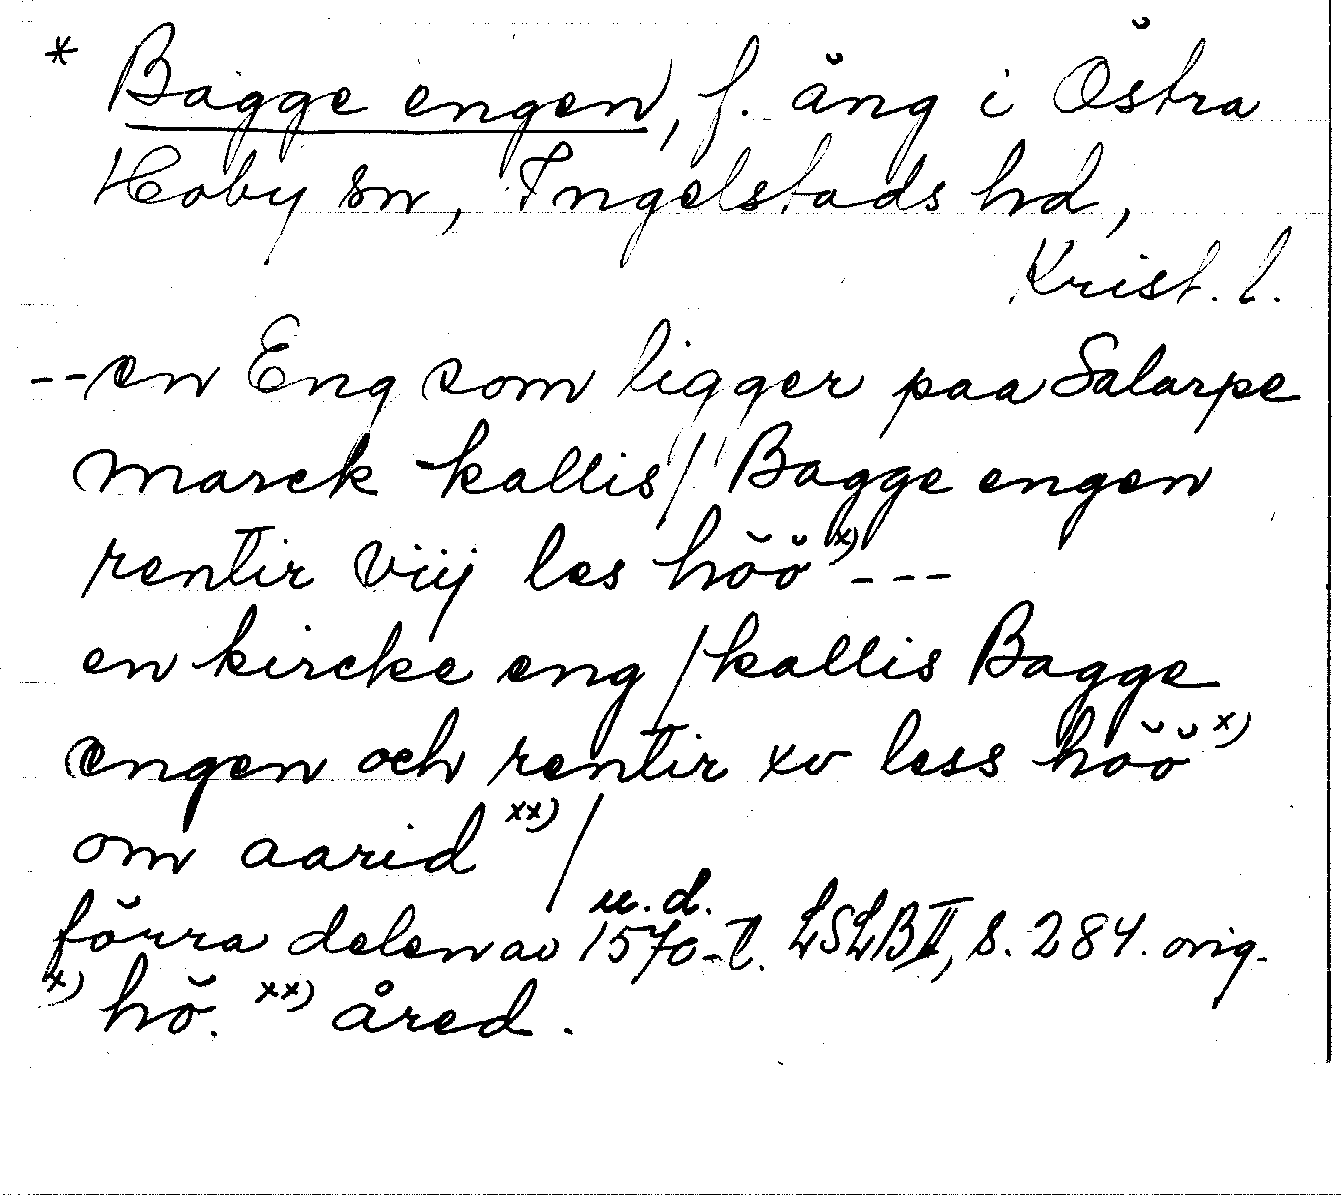 * Bagge engen, f. äng i Östra
Hoby sn, Ingelstads hd,
Krist. l.
--en Eng som ligger paa Salarpe
marck kallis/ Bagge engen
rentir viij les höö x) ---
en kircke eng /kallis Bagge
engen och rentir xv less höö x)
om aarid xx) /
u. d.
förra delen av 1570-t. LSLB II, s. 284. orig.
x) hö. xx) året.